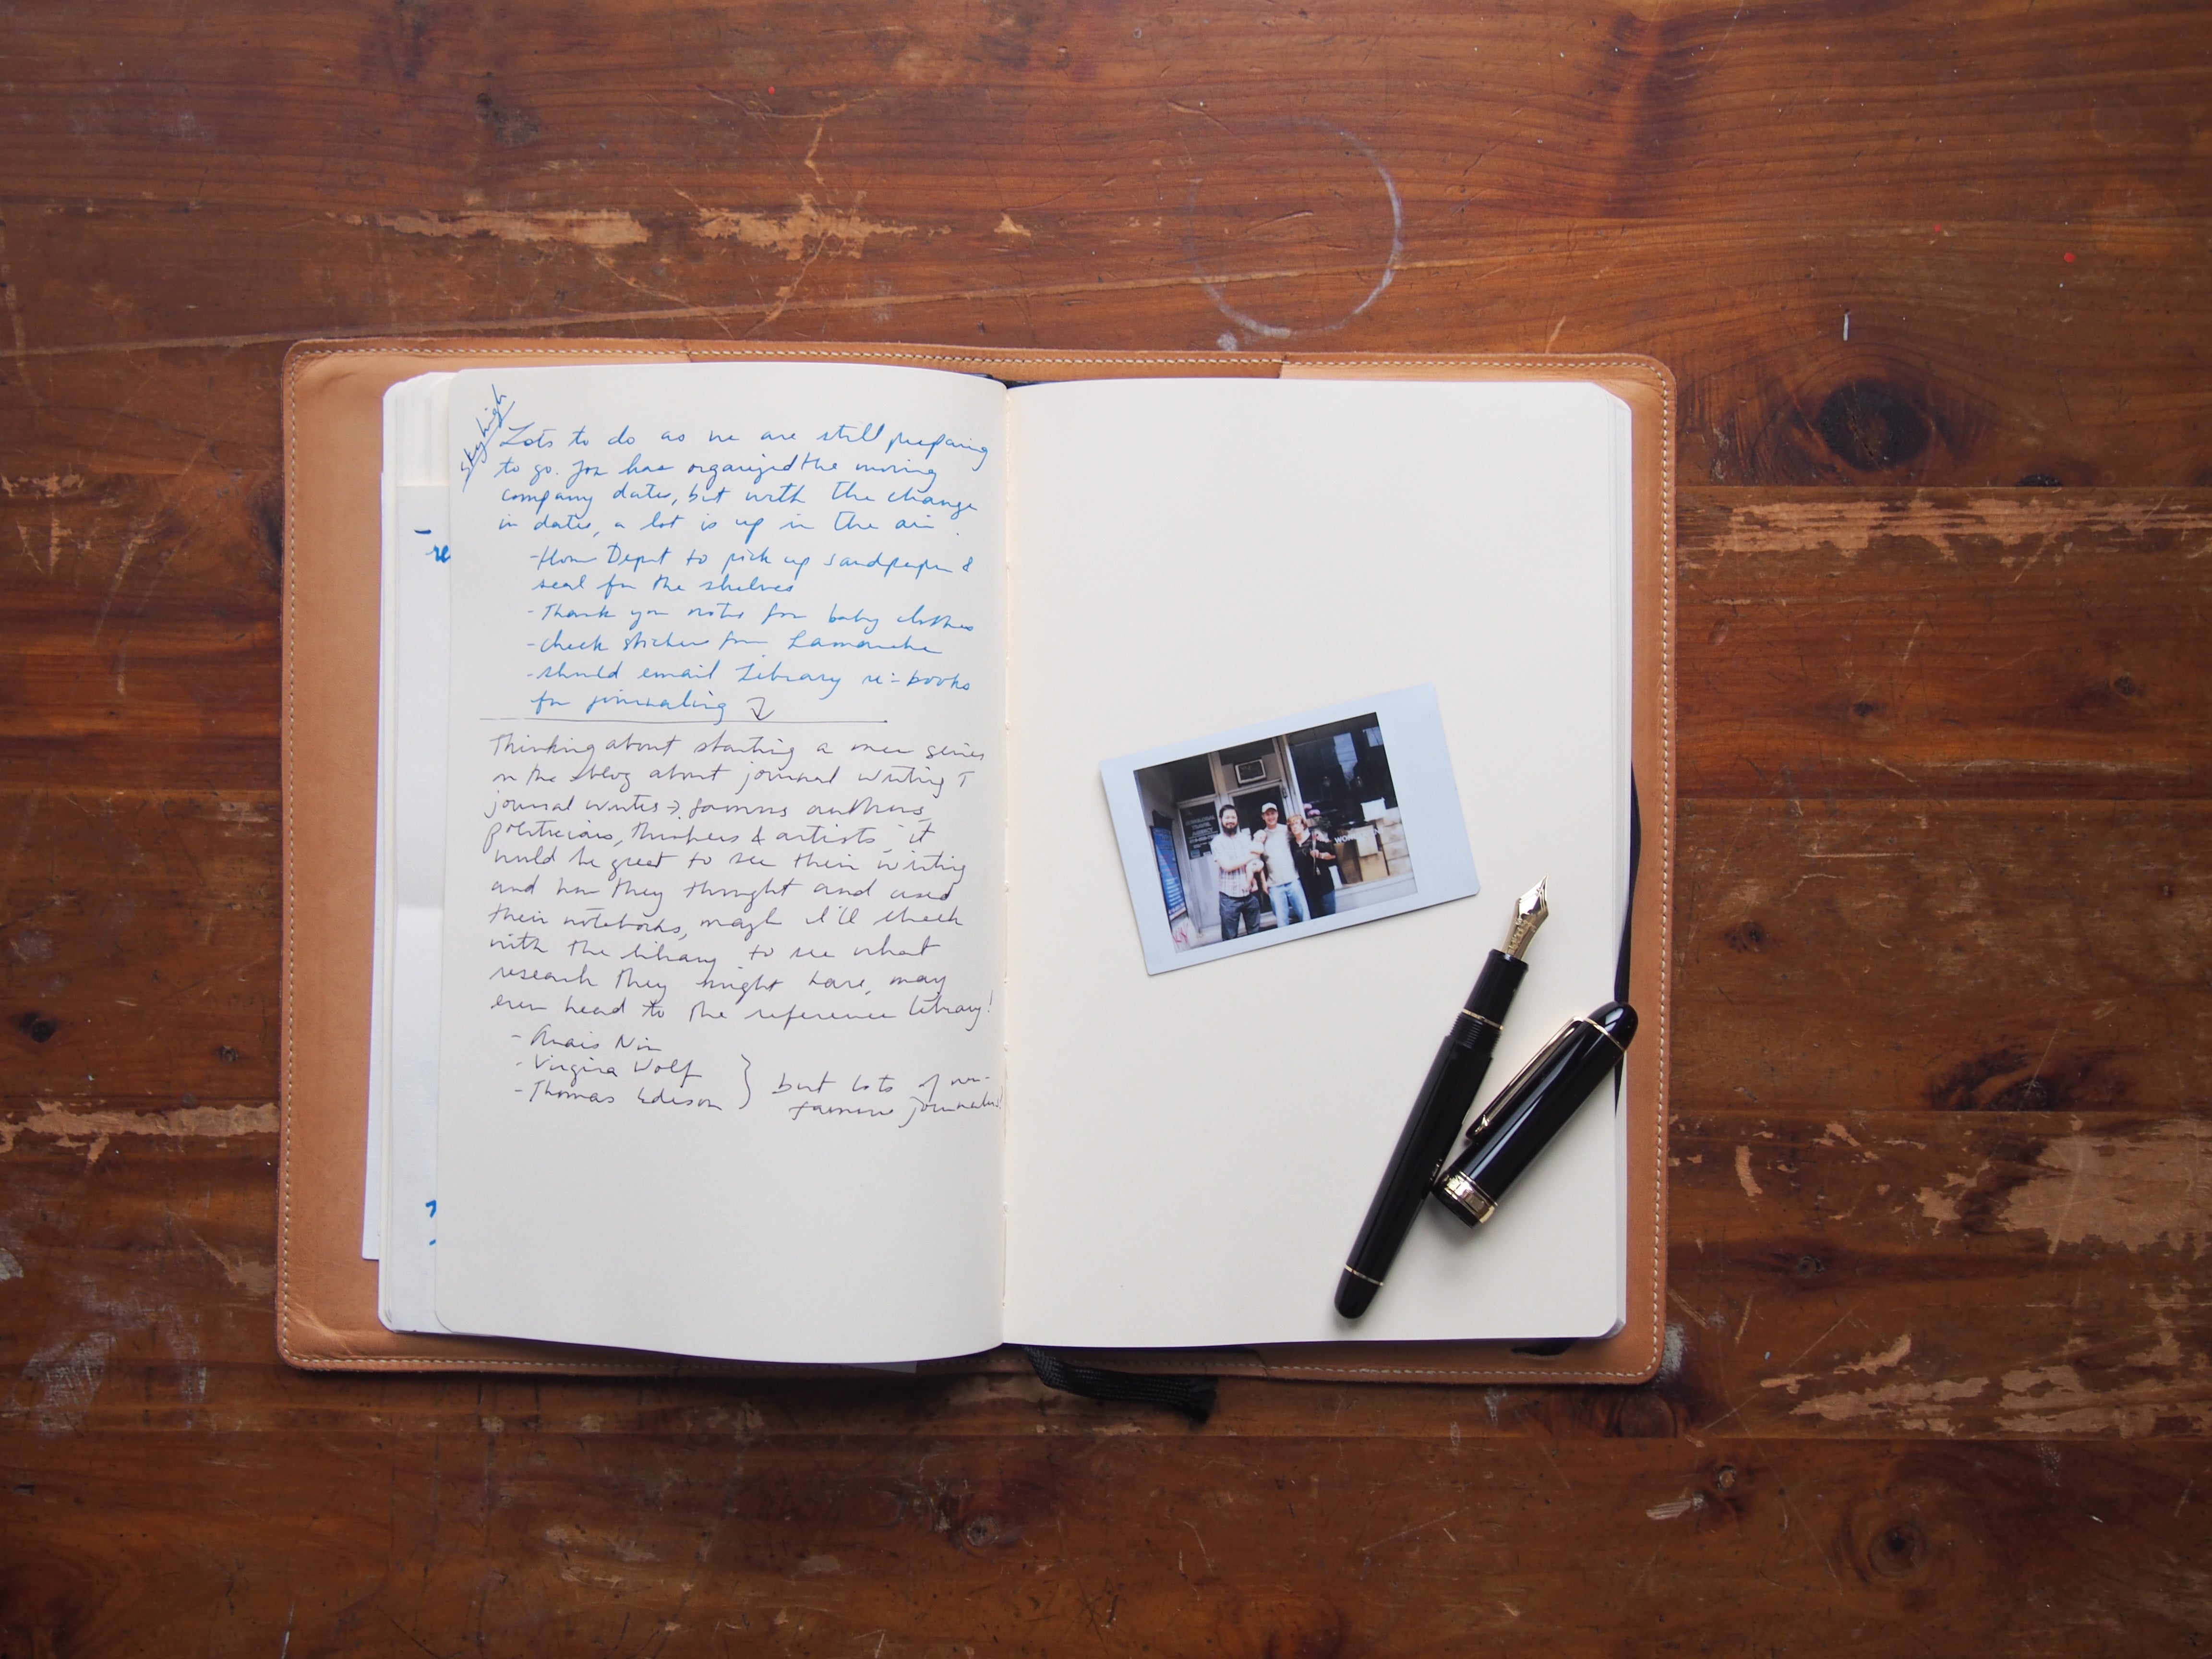 Sky high
Lots to do as we are still preparing
to go. Jon has organized the moving
company dates, but with the change
in dates, a lot is up in the air.
- Home Depot to pick up sandpaper &
seal for the shelves
- Thank you notes for baby clothes
- check stickers from
- should email Library re: books
for journaling
Thinking about starting a new series
on the blog about journal writing +
journal writers → famous authors,
politicians, thinkers & artists, it
would be great to see their writing
and how they thought and used
their notebooks, maybe I'll check
with the library to see what
research they might have, may
even head to the reference library!
- Anais Nin
- Virgina Wolf
- Thomas Edison } but lots of non-
famous
re
TRAVEL
AGENCY